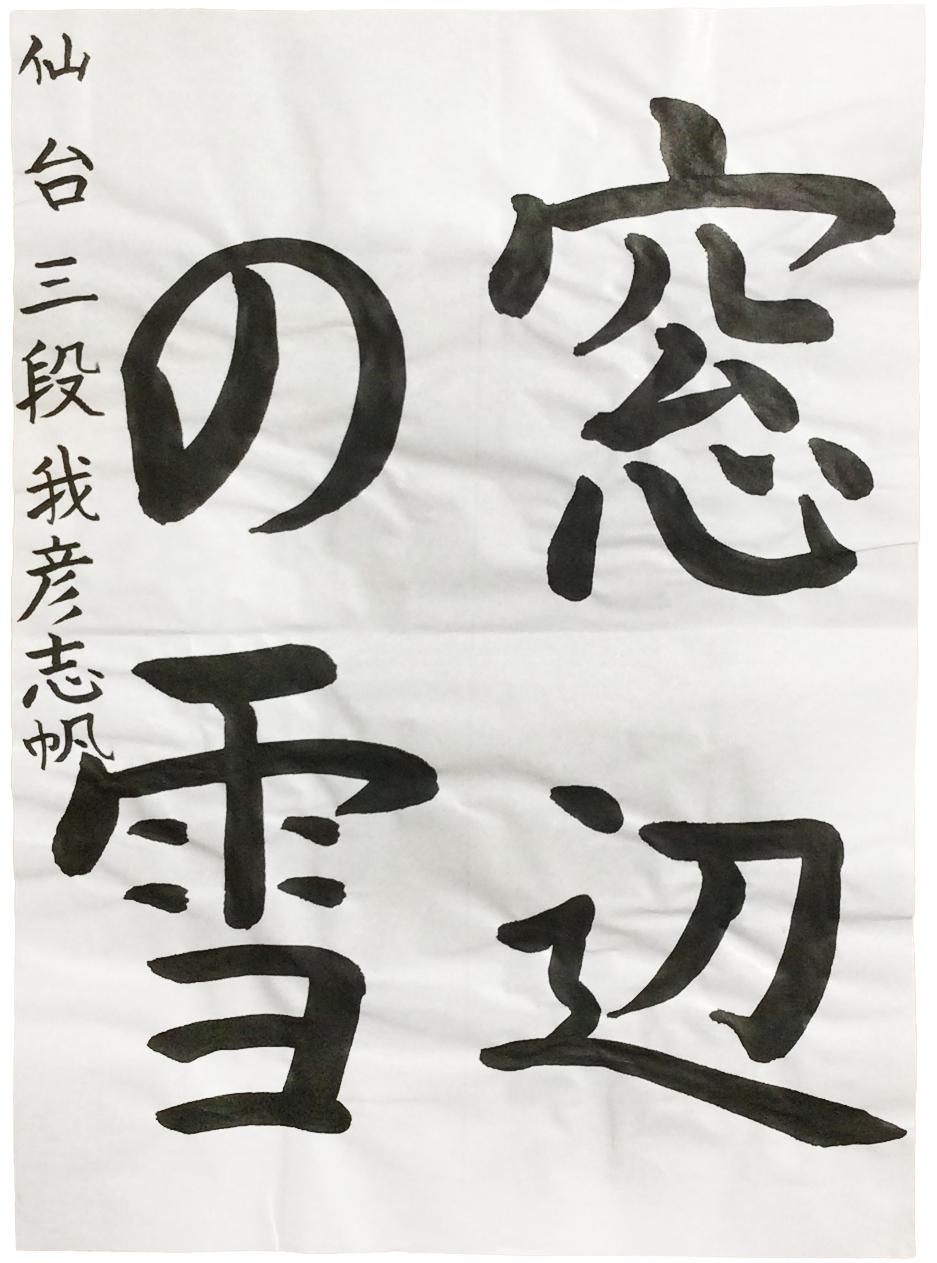 窓辺
の雪
仙台三段我彦志帆